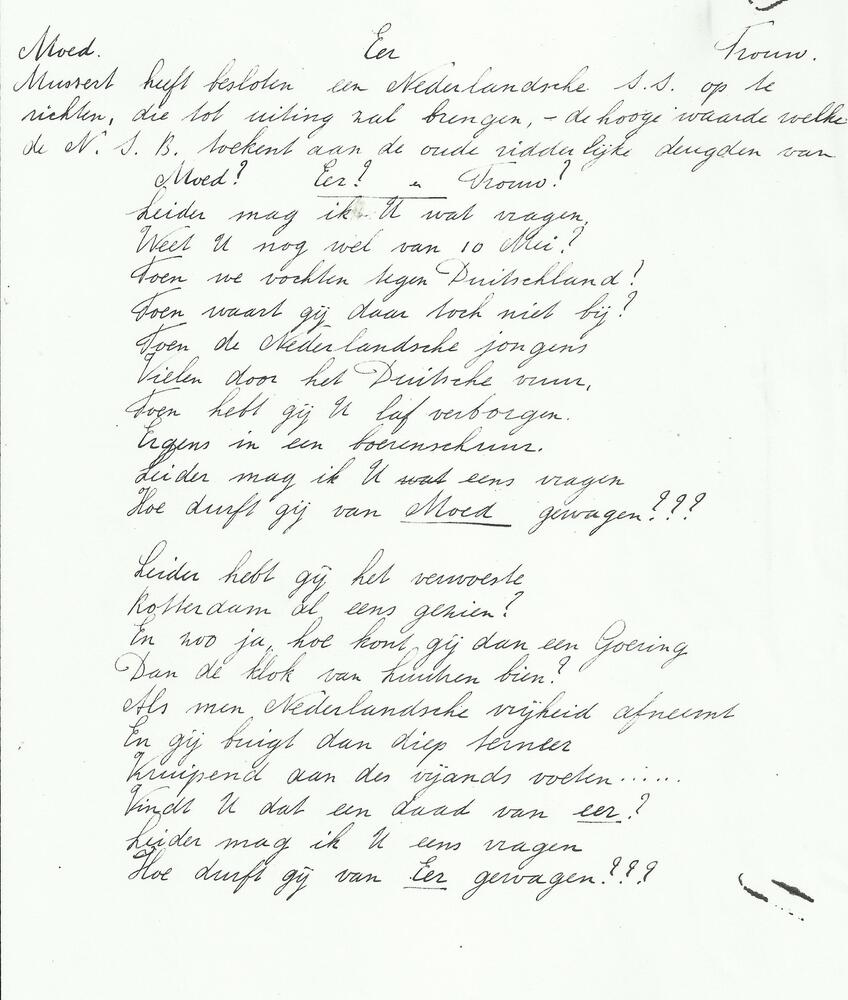 Moed. Eer Trouw.
Mussert heeft besloten een Nederlandsche S.S. op te
richten, die tot uiting zal brengen, - de hooge waarde welke
de N. S. B. toekent aan de oude ridderlijke deugden van
Moed? Eer? en Trouw?
Leider mag ik U wat vragen,
Weet U nog wel van 10 Mei?
Toen we vochten tegen Duitschland?
Toen waart gij daar toch niet bij?
Toen de Nederlandsche jongens
Vielen door het Duitsche vuur,
Toen hebt gij U laf verborgen.
Ergens in een boerenschuur.
Leider mag ik U wat eens vragen
Hoe durft gij van Moed gewagen???
Leider hebt gij het verwoeste
Rotterdam al eens gezien?
En zoo ja, hoe kont gij dan een Goering
Dan de klok van huizen bien?
Als men Nederlandsche vrijheid afneemt
En gij buigt dan diep terneer
Kruipend aan des vijands voeten......
Vindt U dat een daad van eer?
Leider mag ik U eens vragen
Hoe durft gij van Eer gewagen???